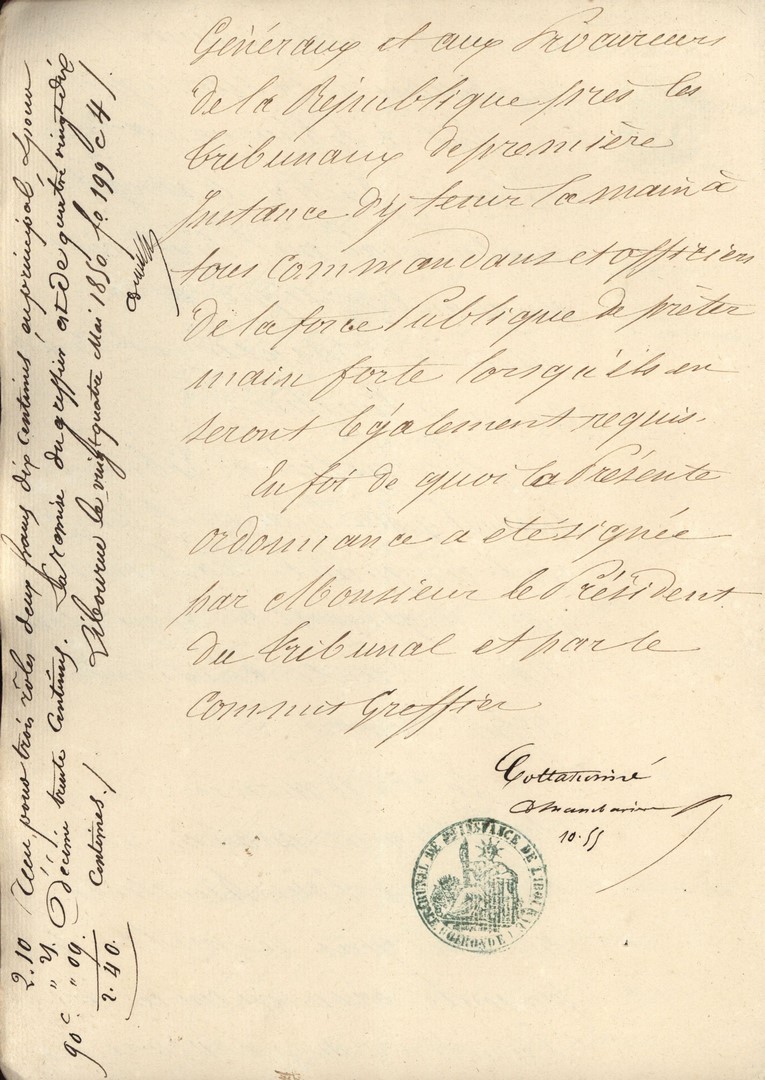 Généraux et aux Procureurs
de la République près les
tribunaux de première
Instance d'y tenir la main à
tous Commandans et officiers
de la force Publique de prêter
main forte lorsqu'ils en
seront légalement requis.
En foi de quoi la Présente
ordonnance a été signée
par Monsieur le Président
du tribunal et par le
Commis Greffier
Collationné
10.55
TRIBUNAL DE 1RE INSTANCE DE LIBOURNE
(GIRONDE)
pour trois rôles deux francs dix centimes en principal
Décime trente Centimes. La remise du greffier est de quatre vingt dix
Libourne le vingt quatre Mai 1850 fo. 199 c 4
centimes.
2.10
90c
2.40.